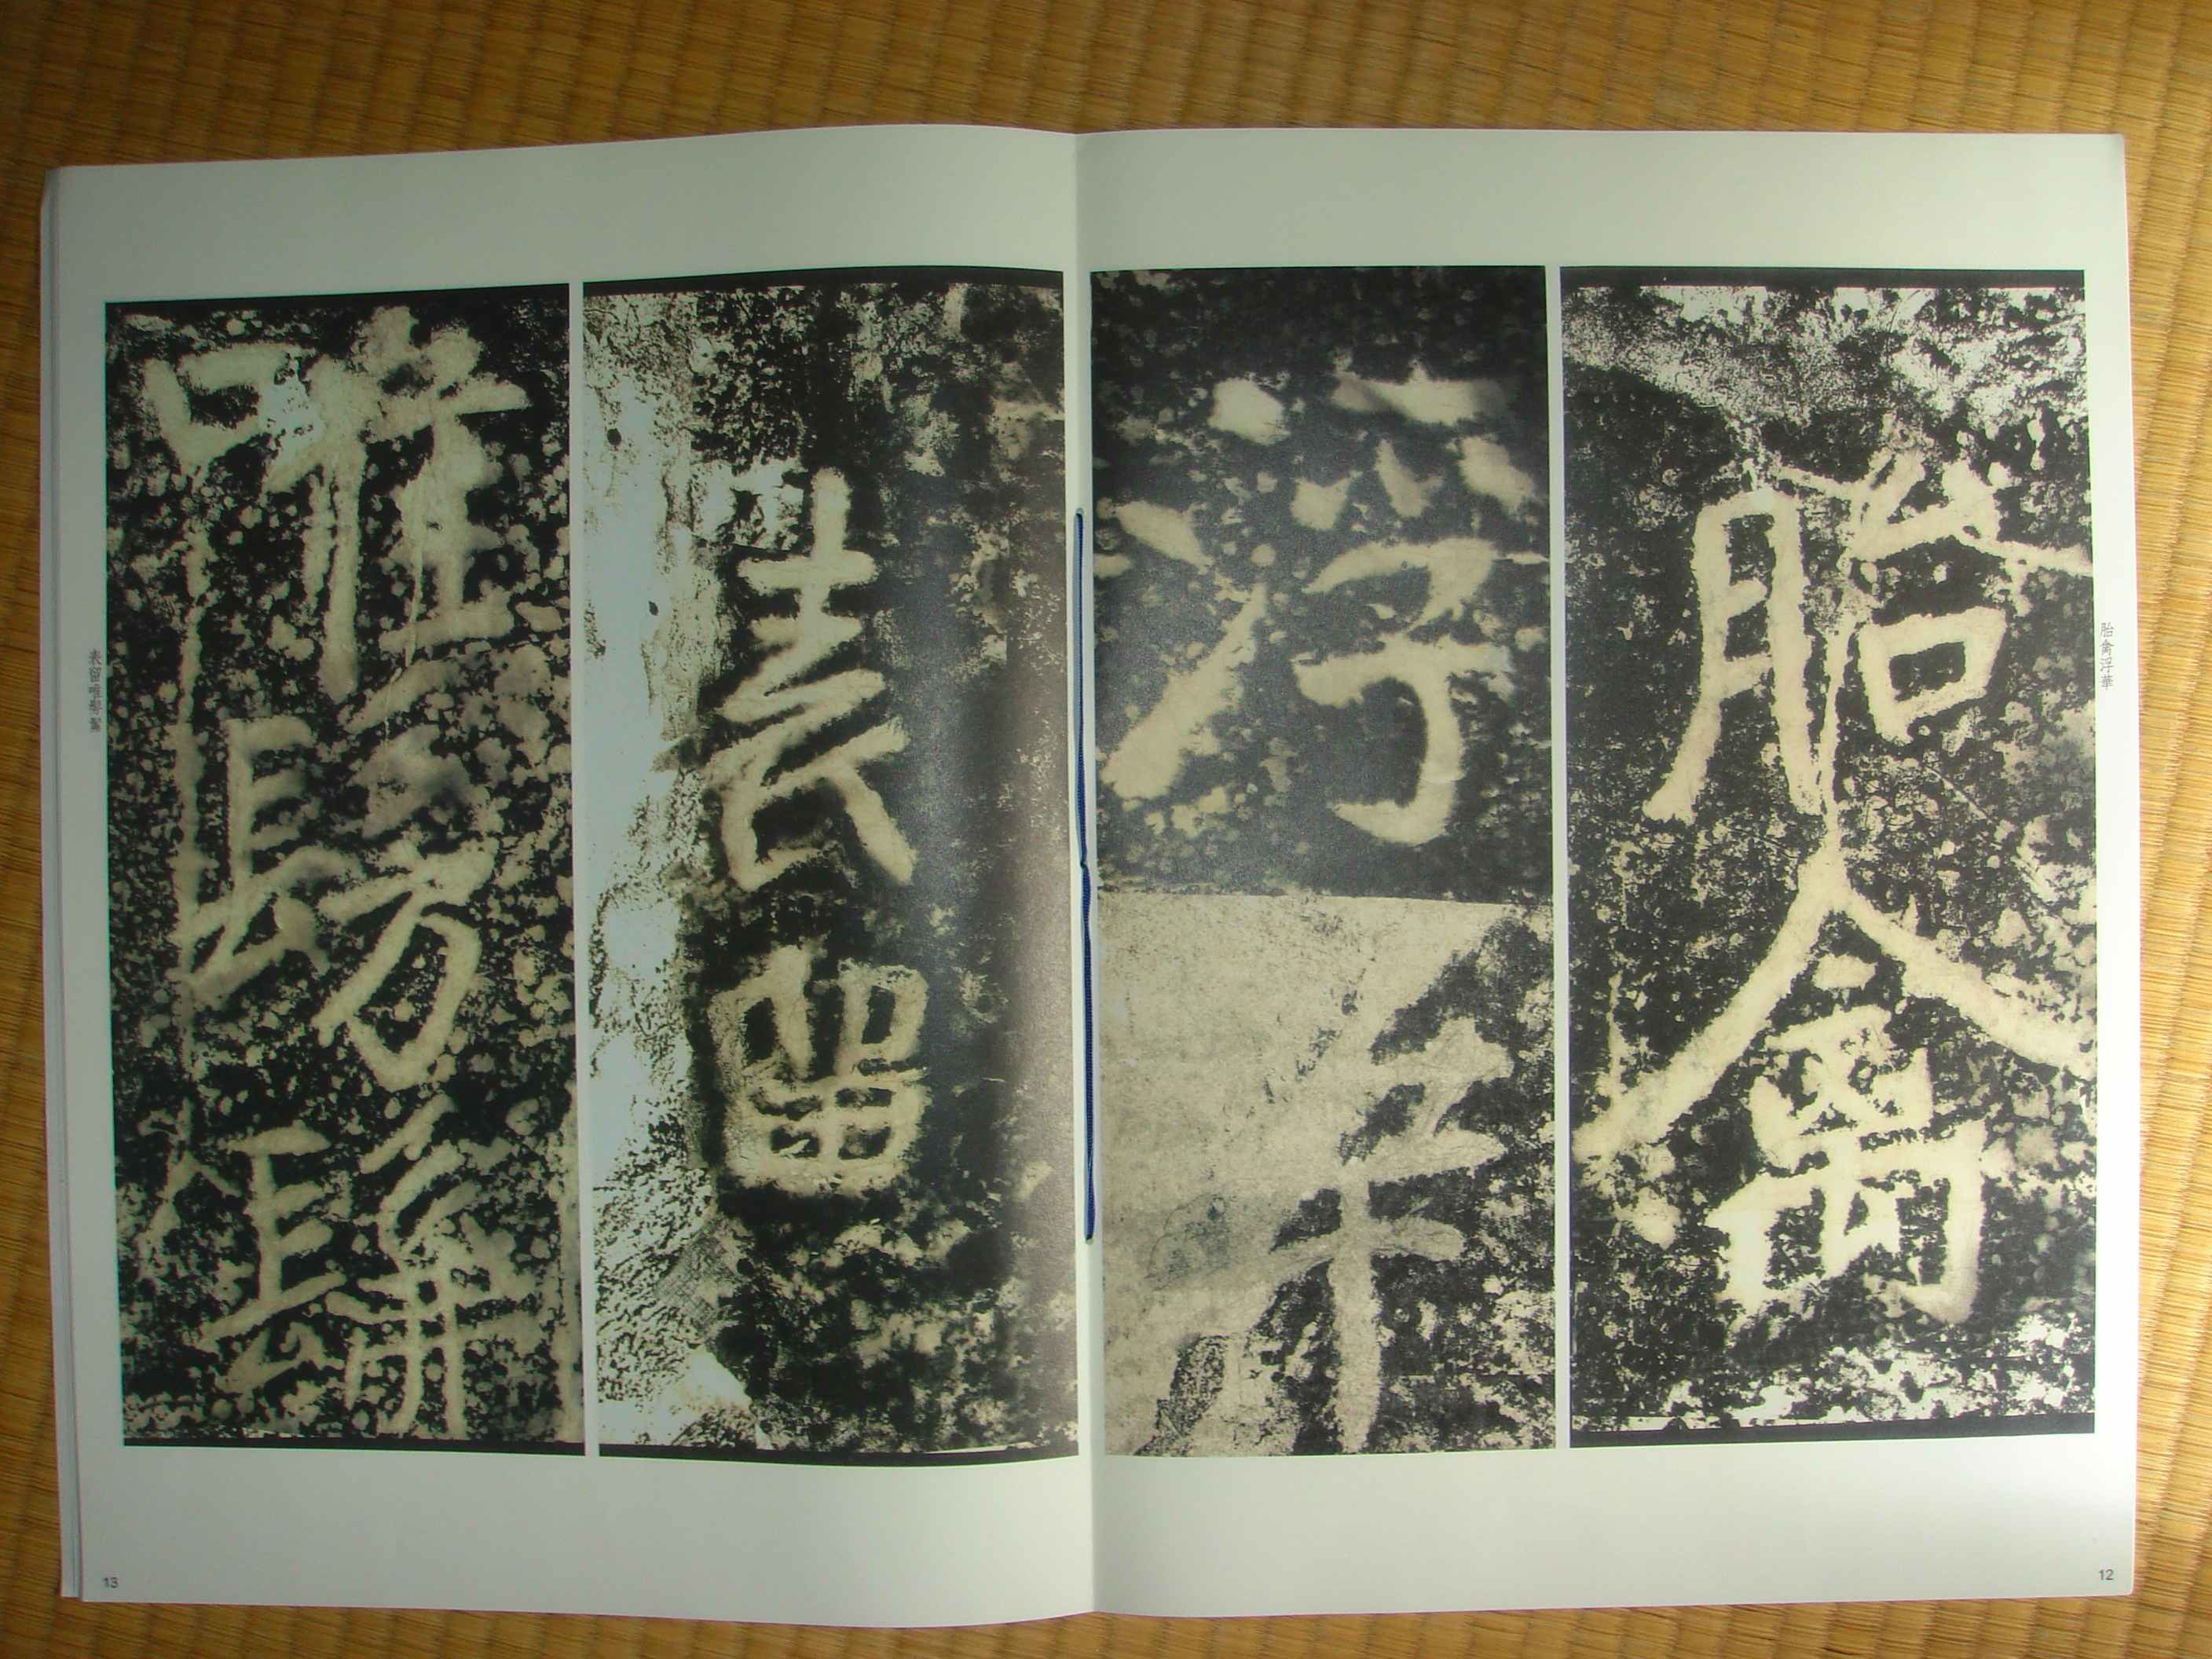 胎禽浮華
胎禽
浮華
12
表留
唯髣髴
表留唯髣髴
13